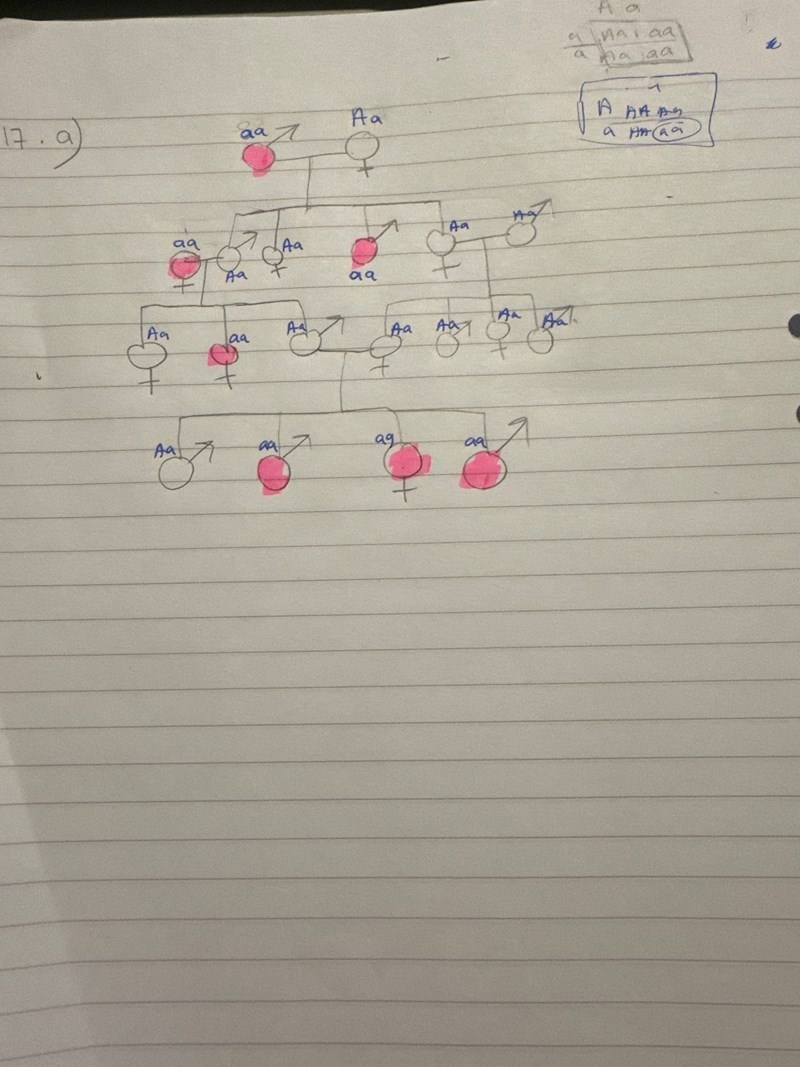 A a
a Aa aa
a Aa aa
A AA Aa
a aa
17. a)
aa Aa
aa Aa Aa aa Aa Aa
Aa aa Aa Aa Aa Aa Aa
Aa aa aa aa